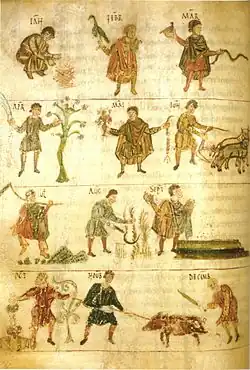 IAN FEBR MAR
APR MAI IUN
IUL AUG SEPT
OCT NOUB